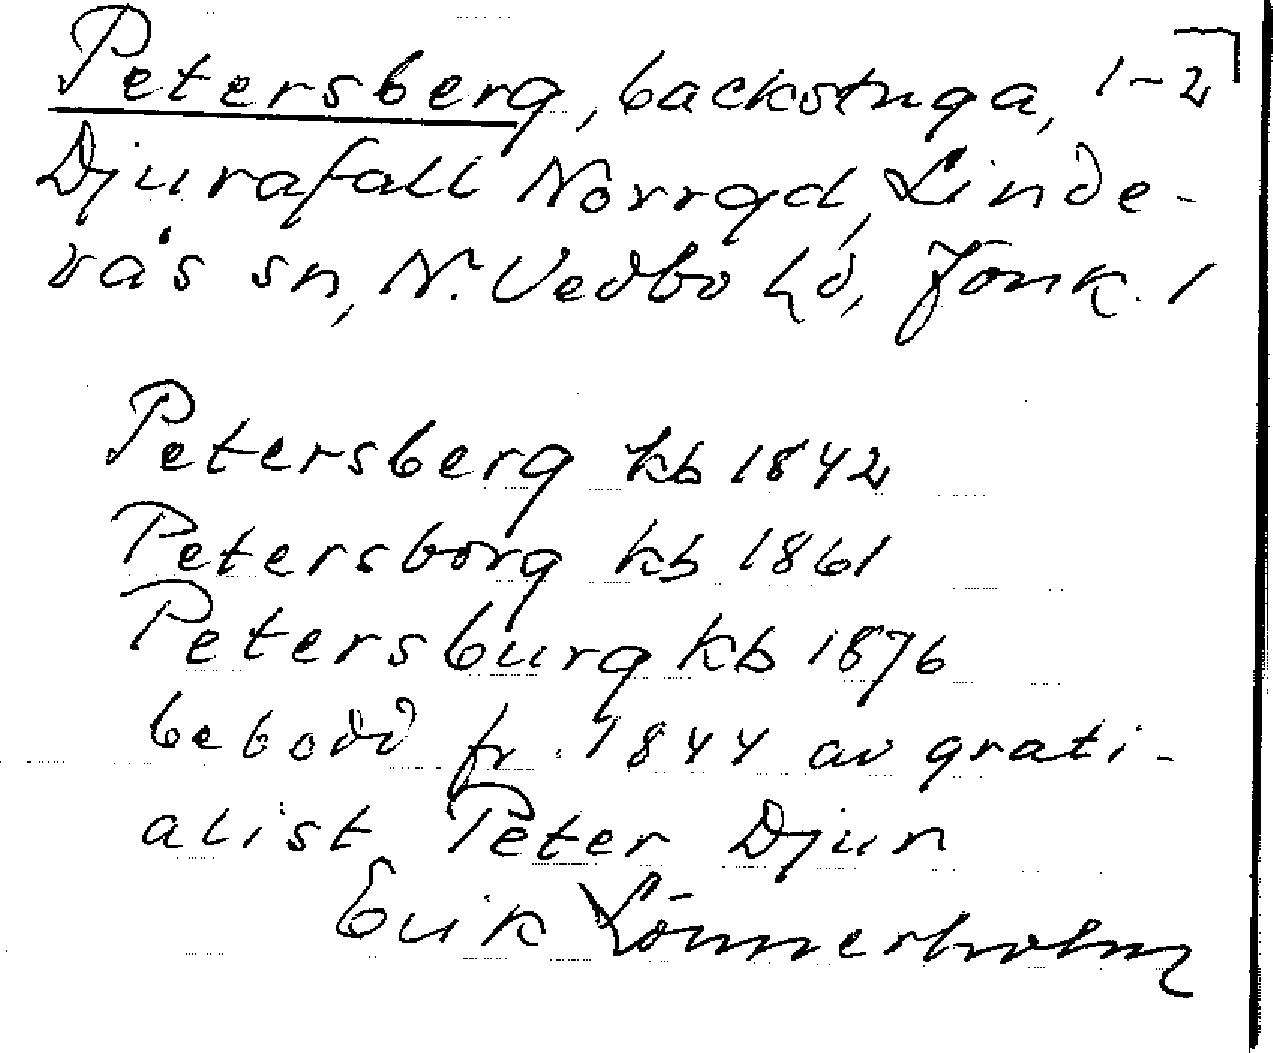 Petersberg, backstuga, 1-2
Djurafall Norrgd, Linde-
rås sn, N. Vedbo hd, Jönk. l
Petersberg kb 1842
Petersborg kb 1861
Petersburg kb 1876
bebodd fr. 1844 av grati-
alist Peter Djur
Erik Lönnerholm